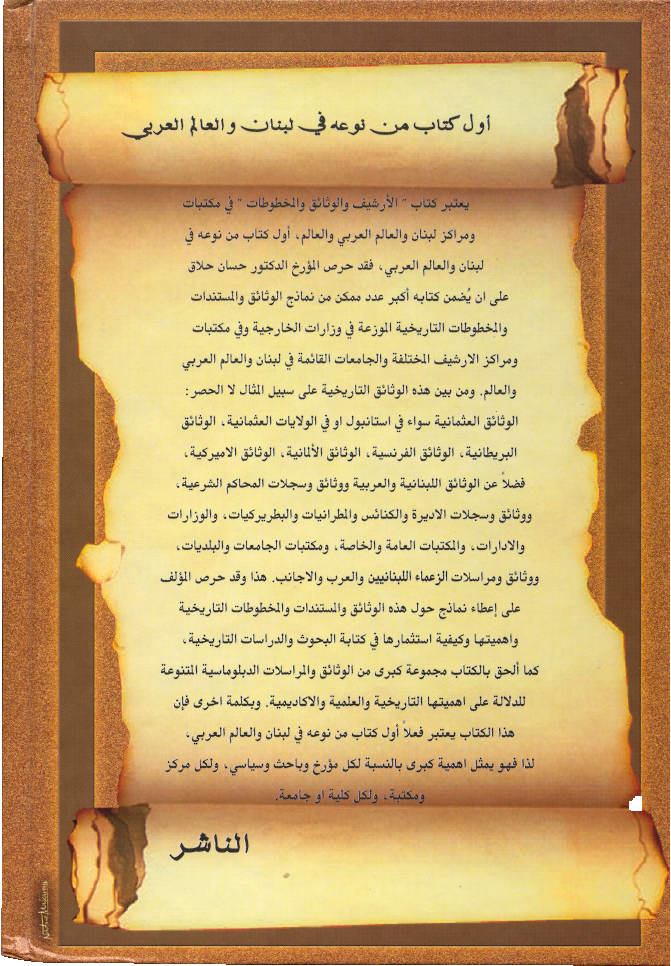 أول كتاب من نوعه في لبنان والعالم العربي
يعتبر كتاب " الأرشيف والوثائق والمخطوطات " في مكتبات
ومراكز لبنان والعالم العربي والعالم، أول كتاب من نوعه في
لبنان والعالم العربي، فقد حرص المؤرخ الدكتور حسان حلاق
على ان يُضمن كتابه أكبر عدد ممكن من نماذج الوثائق والمستندات
والمخطوطات التاريخية الموزعة في وزارات الخارجية وفي مكتبات
ومراكز الارشيف المختلفة والجامعات القائمة في لبنان والعالم العربي
والعالم. ومن بين هذه الوثائق التاريخية على سبيل المثال لا الحصر:
الوثائق العثمانية سواء في استانبول او في الولايات العثمانية، الوثائق
البريطانية، الوثائق الفرنسية، الوثائق الألمانية، الوثائق الاميركية،
فضلاً عن الوثائق اللبنانية والعربية ووثائق وسجلات المحاكم الشرعية،
ووثائق وسجلات الاديرة والكنائس والمطرانيات والبطريركيات، والوزارات
والادارات، والمكتبات العامة والخاصة، ومكتبات الجامعات والبلديات،
ووثائق ومراسلات الزعماء اللبنانيين والعرب والاجانب. هذا وقد حرص المؤلف
على إعطاء نماذج حول هذه الوثائق والمستندات والمخطوطات التاريخية
واهميتها وكيفية استثمارها في كتابة البحوث والدراسات التاريخية،
كما ألحق بالكتاب مجموعة كبرى من الوثائق والمراسلات الدبلوماسية المتنوعة
للدلالة على اهميتها التاريخية والعلمية والاكاديمية. وبكلمة اخرى فإن
هذا الكتاب يعتبر فعلاً أول كتاب من نوعه في لبنان والعالم العربي،
لذا فهو يمثل اهمية كبرى بالنسبة لكل مؤرخ وباحث وسياسي، ولكل مركز
ومكتبة، ولكل كلية او جامعة.
الناشر